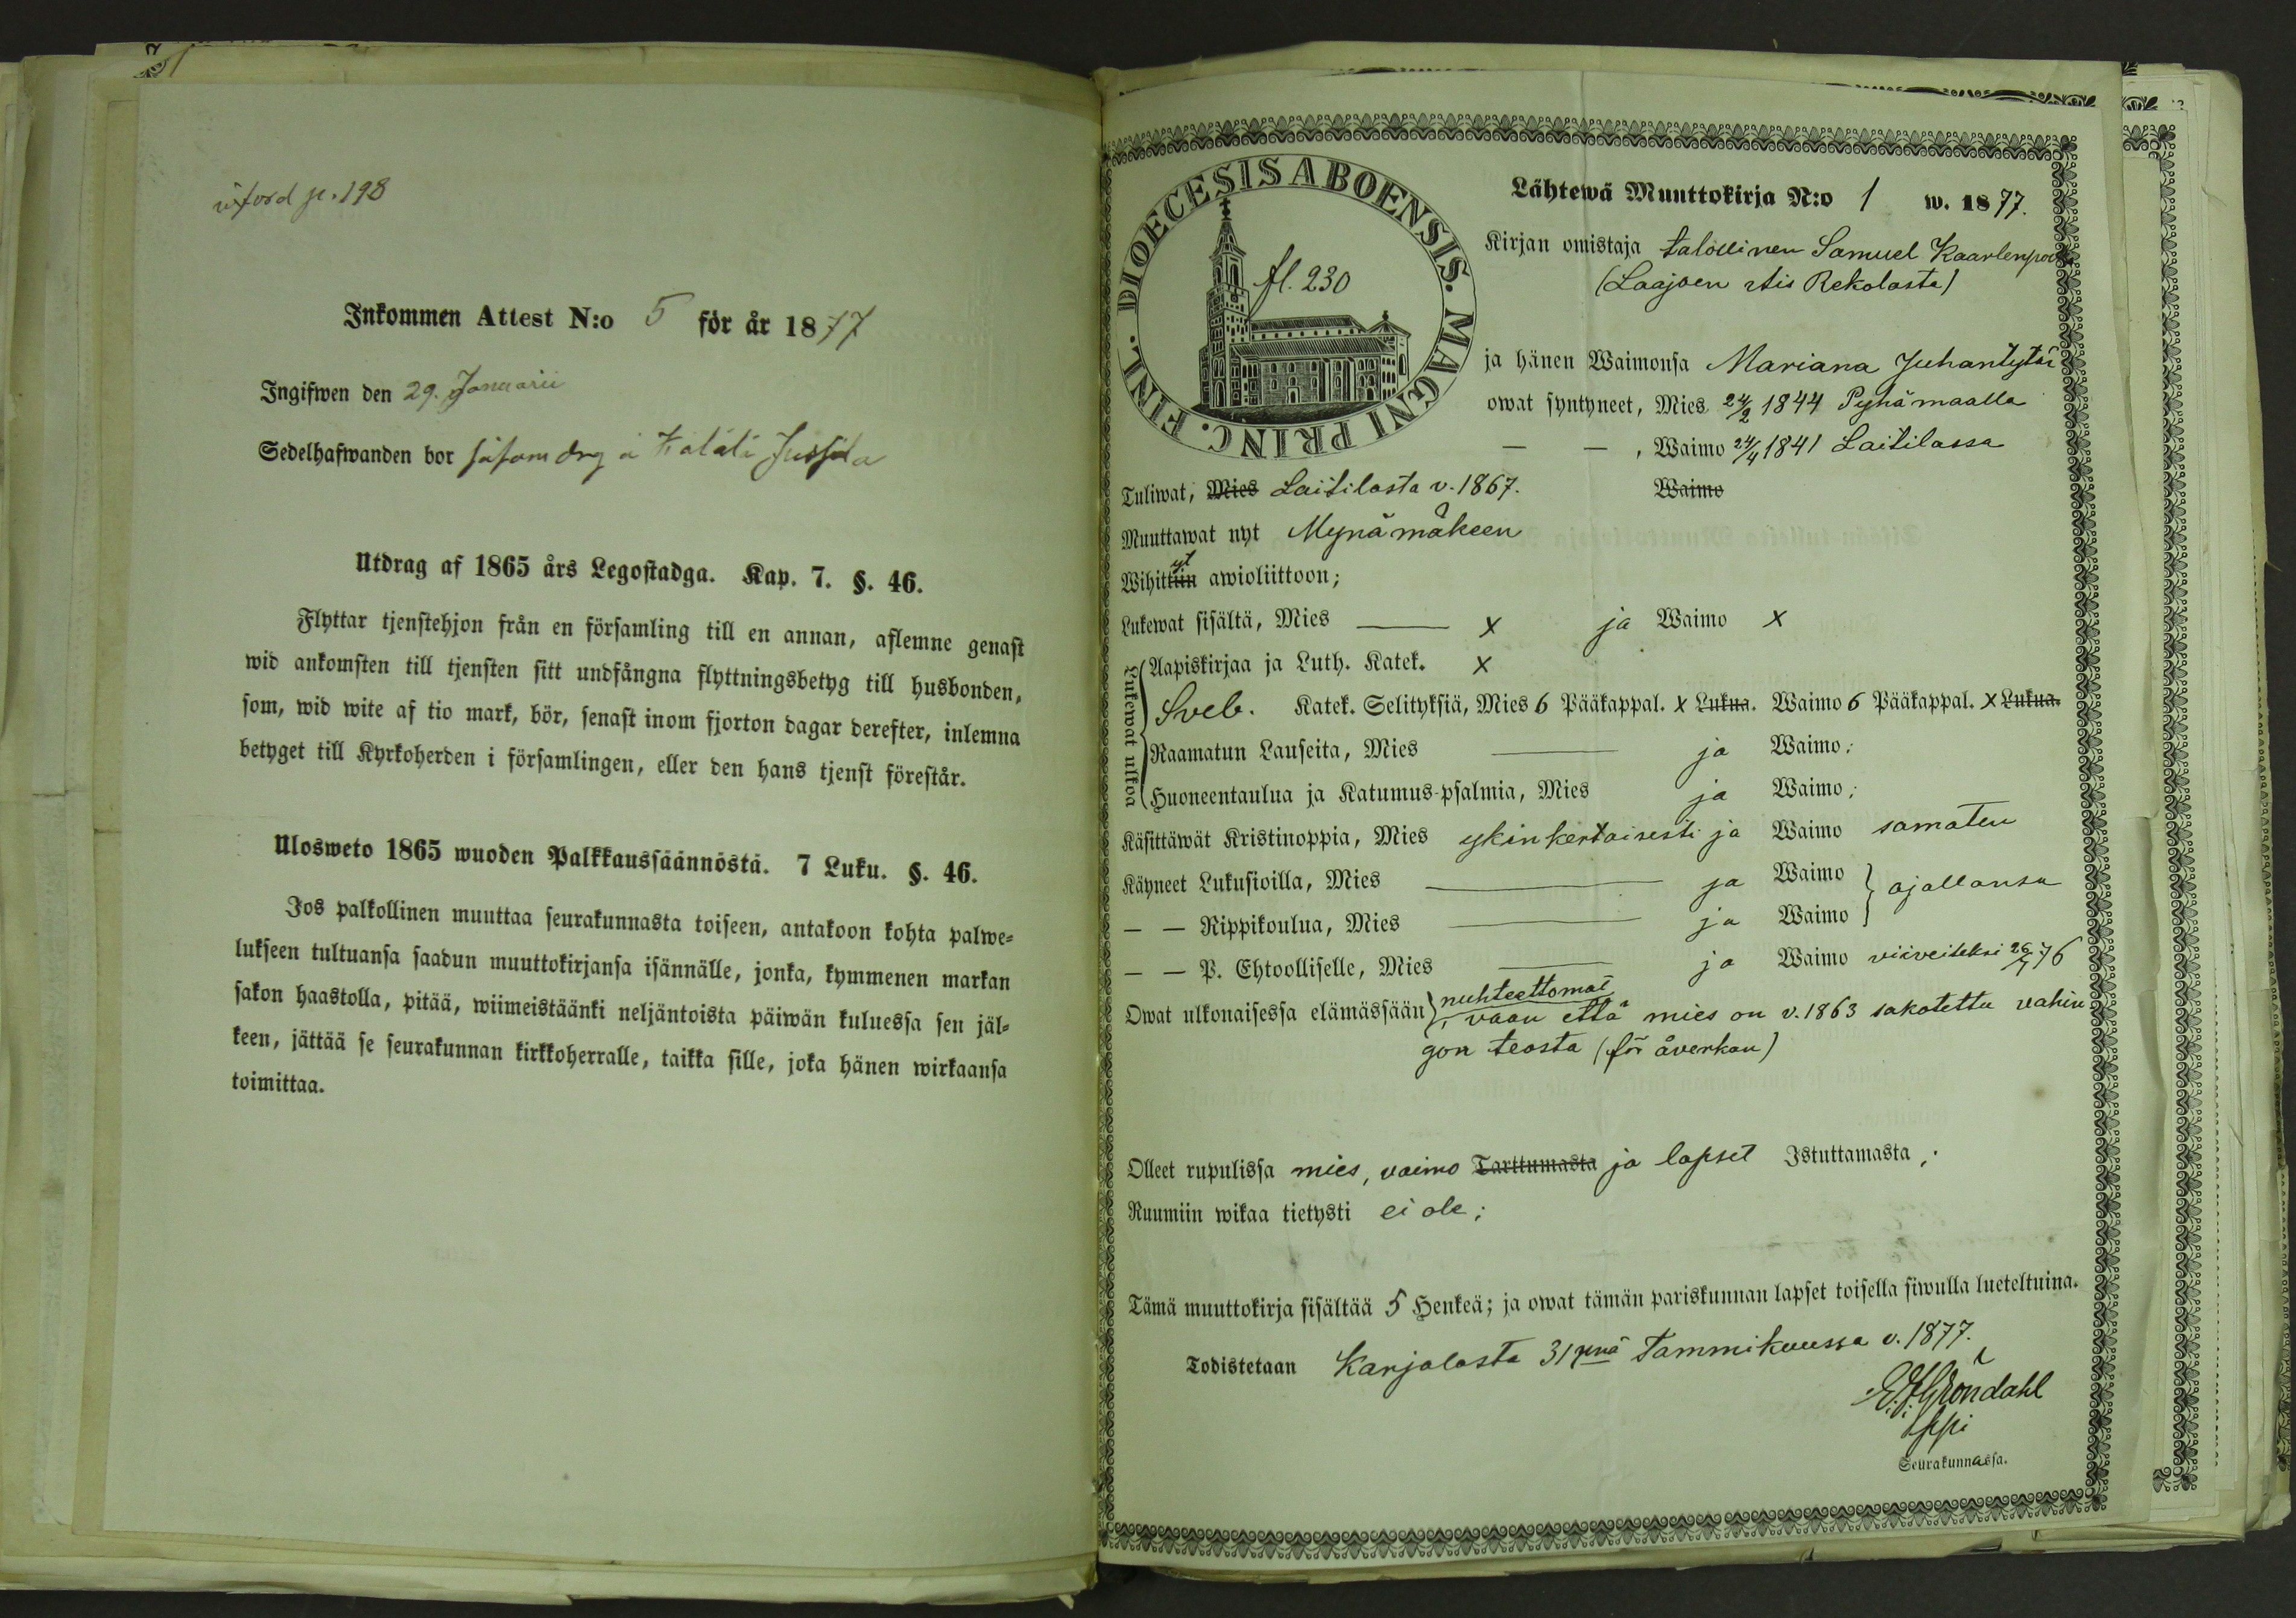 införd p. 198
Inkommen Attest N:o 5 för år 1877
Ingifwen den 29. Januarii
Sedelhafwanden bor såsom drg å Kalati Jussila
Utdrag af 1865 års Legostadga. Kap. 7. §. 46.
Flyttar tjenstehjon från en församling till en annan, aflemne genast
wid ankomsten till tjensten sitt undfångna flyttningsbetyg till husbonden,
som, wid wite af tio mark, bör, senast inom fjorton dagar derefter, inlemna
betyget till Kyrkoherden i församlingen, eller den hans tjenst förestår.
Ulosweto 1865 wuoden Palkkaussäännöstä. 7 Luku. §. 46.
Jos palkollinen muuttaa seurakunnasta toiseen, antakoon kohta palwe=
lukseen tultuansa saadun muuttokirjansa isännälle, jonka, kymmenen markan
sakon haastolla, pitää, wiimeistäänki neljäntoista päiwän kuluessa sen jäl=
keen, jättää se seurakunnan kirkkoherralle, taikka sille, joka hänen wirkaansa
toimittaa.
DIOECESIS ABOENSIS. MAGNI PRINC. FINL.
fl. 230
Lähtewä Muuttokirja N:o 1 w. 1877.
Kirjan omistaja talollinen Samuel Kaarlenpoika
(Laajoen Rekolasta)
ja hänen Waimonsa Mariana Juhantytär
owat syntyneet, Mies 24/2 1844 Pyhämaalla
— — , Waimo 24/4 1841 Laitilassa
Tuliwat, Mies Laitilasta v. 1867. Waimo
Muuttawat nyt Mynämäkeen
Wihittiin yt awioliittoon;
Lukewat sisältä, Mies — x ja Waimo x
Lukewat ulkoa
Aapiskirjaa ja Luth. Katek. x
Sveb. Katek. Selityksiä, Mies 6 Pääkappal. x Lukua. Waimo 6 Pääkappal. x Lukua.
Raamatun Lauseita, Mies — ja Waimo;
Huoneentaulua ja Katumus-psalmia, Mies ja Waimo;
Käsittäwät Kristinoppia, Mies yksinkertaisesti ja Waimo samaten
Käyneet Lukusioilla, Mies — ja Waimo } ajallansa
— — Rippikoulua, Mies — ja Waimo
— — P. Ehtoolliselle, Mies — ja Waimo viiveiseksi 26/7 76
Owat ulkonaisessa elämässään } nuhteettomat
, vaan että mies on v. 1863 sakotettu vahin
gon teosta (för åverkan)
Olleet rupulissa mies, vaimo Tarttumasta ja lapset Istuttamasta;
Ruumiin wikaa tietysti ei ole;
Tämä muuttokirja sisältää 5 Henkeä; ja owat tämän pariskunnan lapset toisella siwulla lueteltuina.
Todistetaan Karjalasta 31 pnä Tammikuussa v. 1877.
Gröndahl
Seurakunnassa.